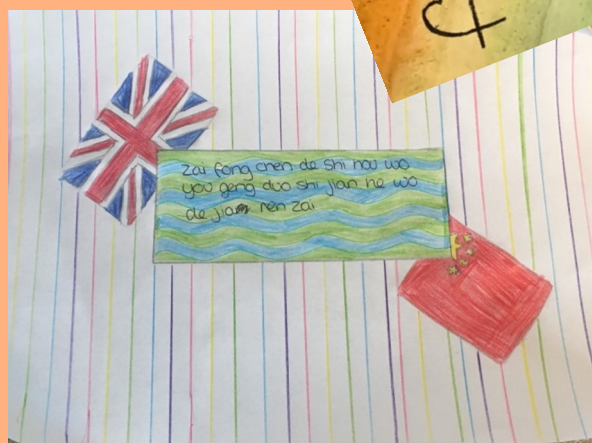 Zai fang chen de shi hou wo
you geng duo shi jian he wo
de jian ren zai